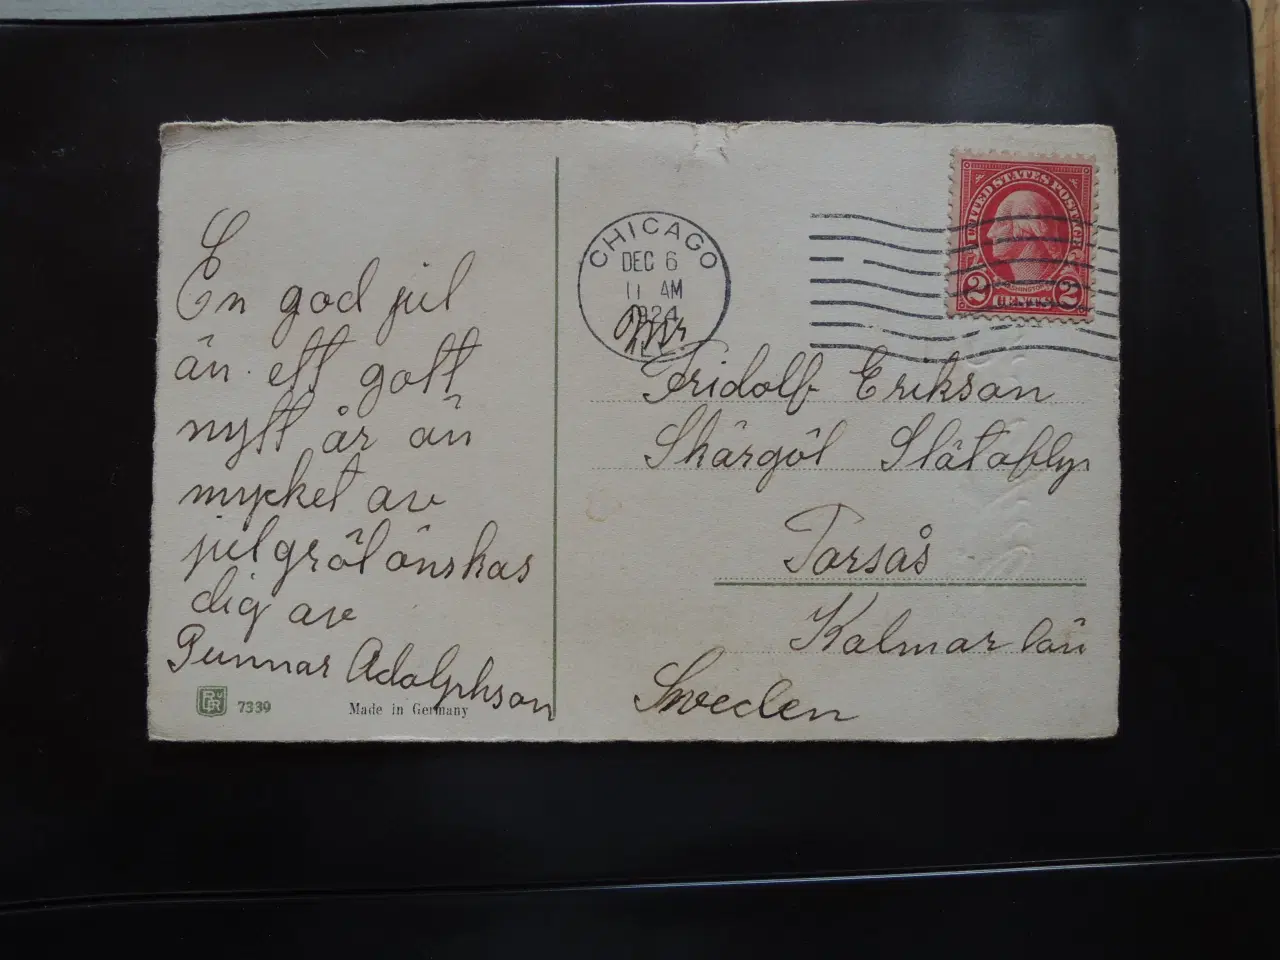 En god jul
än ett gott
nytt år än
mycket av
julgröt önskas
dig av
Gunnar Adolphson
7339
Made in Germany
CHICAGO
DEC 6
11 AM
1924
ILL.
UNITED STATES POSTAGE
WASHINGTON
2 CENTS 2
Mr
Fridolf Erikson
Skärgöl Slätafly
Torsås
Kalmar län
Sweden